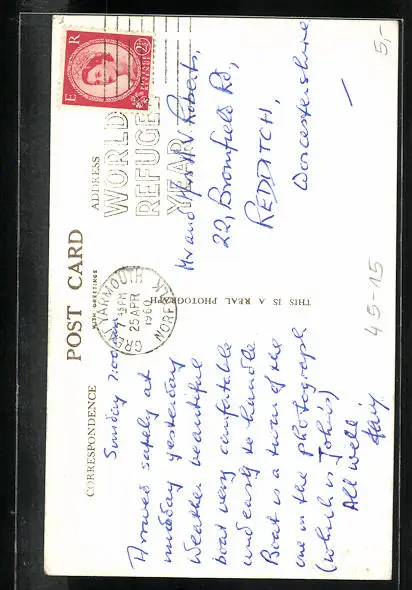 POST CARD
WITH GREETINGS
CORRESPONDENCE
ADDRESS
THIS IS A REAL PHOTOGRAPH
E R
2½
WORLD
REFUGEE
YEAR
GREAT YARMOUTH
PM
25 APR
1960
NORFOLK
Sunday 7.00 am
Arrived safely at
midday yesterday
Weather beautiful
boat very comfortable
and easy to handle
Boat is a twin of the
one in the photograph
(which is John's)
All well
Mr and Mrs V Roberts,
22, Bromfield Rd,
REDDITCH,
Worcestershire
5,-
45-15